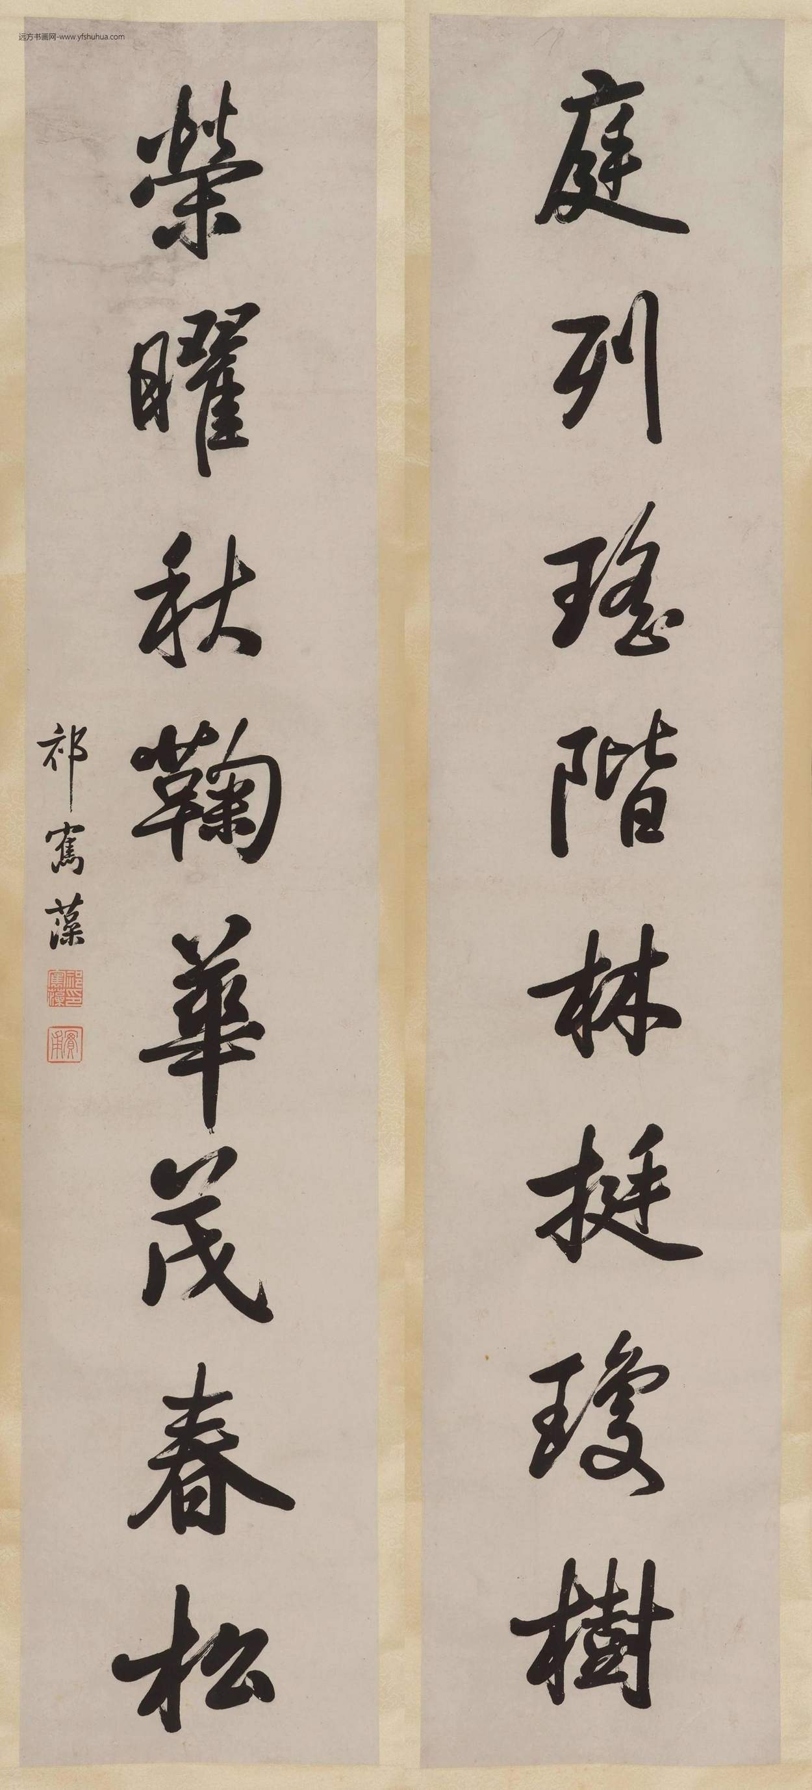 远方书画网-www.yfshuhua.com
庭列瑤階林挺瓊樹
榮曜秋鞠華茂春松
祁寯藻
祁寯藻印
實甫